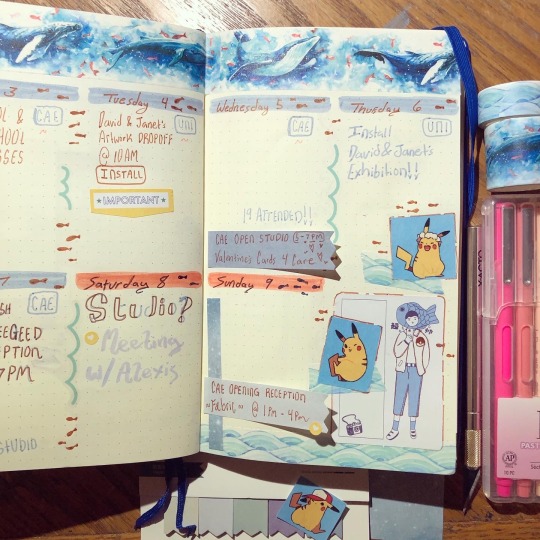 3
CAE
OL &
HOOL
GGES
Tuesday 4
UNI
David & Janet's
Artwork DROPOFF
@ 10 AM
INSTALL
IMPORTANT
Wednesday 5
CAE
19 ATTENDED!!
CAE OPEN STUDIO 5-7PM
Valentines Cards 4 Care
Thursday 6
UNI
Install
David & Janet's
Exhibition!!
7
CAE
SH
PTION
7PM
STUDIO
Saturday 8
Studio?
Meeting
w/ Alexis
Sunday 9
CAE OPENING RECEPTION
"Fabric" @ 1PM - 4PM
AP